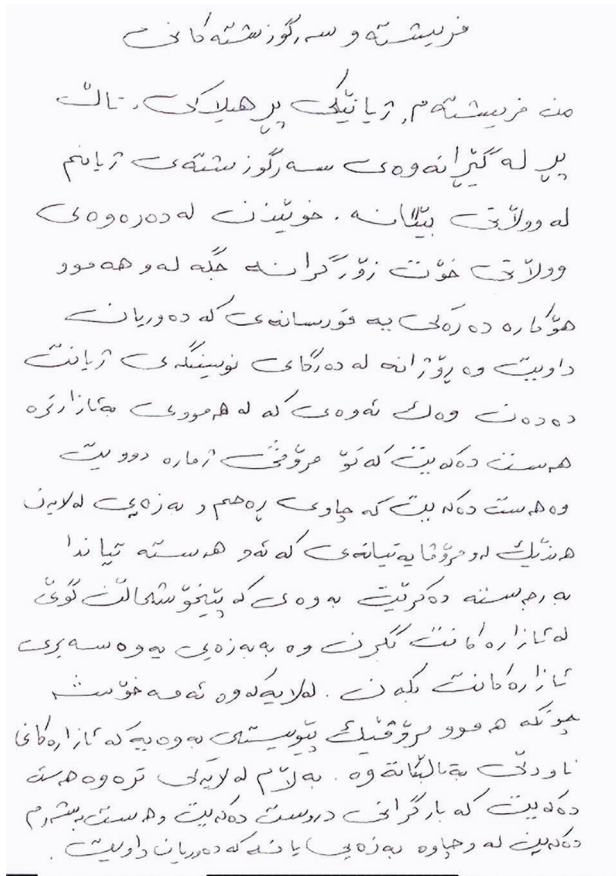 فریشتە و سەرگوزشتەکانی
من فریشتەم, ژیانێکی پڕ هیلاکی, تاڵ
پڕ لە گێڕانەوەی سەرگوزشتەی ژیانم
لە وولاتی بێگانە. خوێندن لە دەرەوەی
وولاتی خۆت زۆر گرانە جگە لەو هەموو
هۆکارە دەرەکی یە قورسانەی کە دەوریان
داویت وە ڕۆژانە لە دەرگای نوسینگەی ژیانت
دەدەن وەك ئەوەی کە لە هەمووی بەئازارترە
هەست دەکەیت کە تۆ مرۆڤی ژمارە دوویت
وە هەست دەکەیت کە چاوی ڕەحم و بەزەیی لەلایەن
هەندێك لەو مرۆڤایەتیانەی کە ئەو هەستە تیاندا
بەرجەستە دەکرێت بەوەی کە پێیخۆشحاڵن گوێ
لە ئازارەکانت بگرن وە بە بەزەیی یەوە سەیری
ئازارەکانت بکەن. لەلایەکەوە ئەمە خۆشە
چونکە هەموو مرۆڤێك پێویستی بەوەیە کە ئازارەکانی
ناودڵی بەتاڵبکاتەوە. بەڵام لەلایەکی ترەوە هەست
دەکەیت کە بارگرانی دروست دەکەیت وهەست بەشەرم
دەکەیت لەو چاوە بەزەیی یانە کە دەوریان داویت.